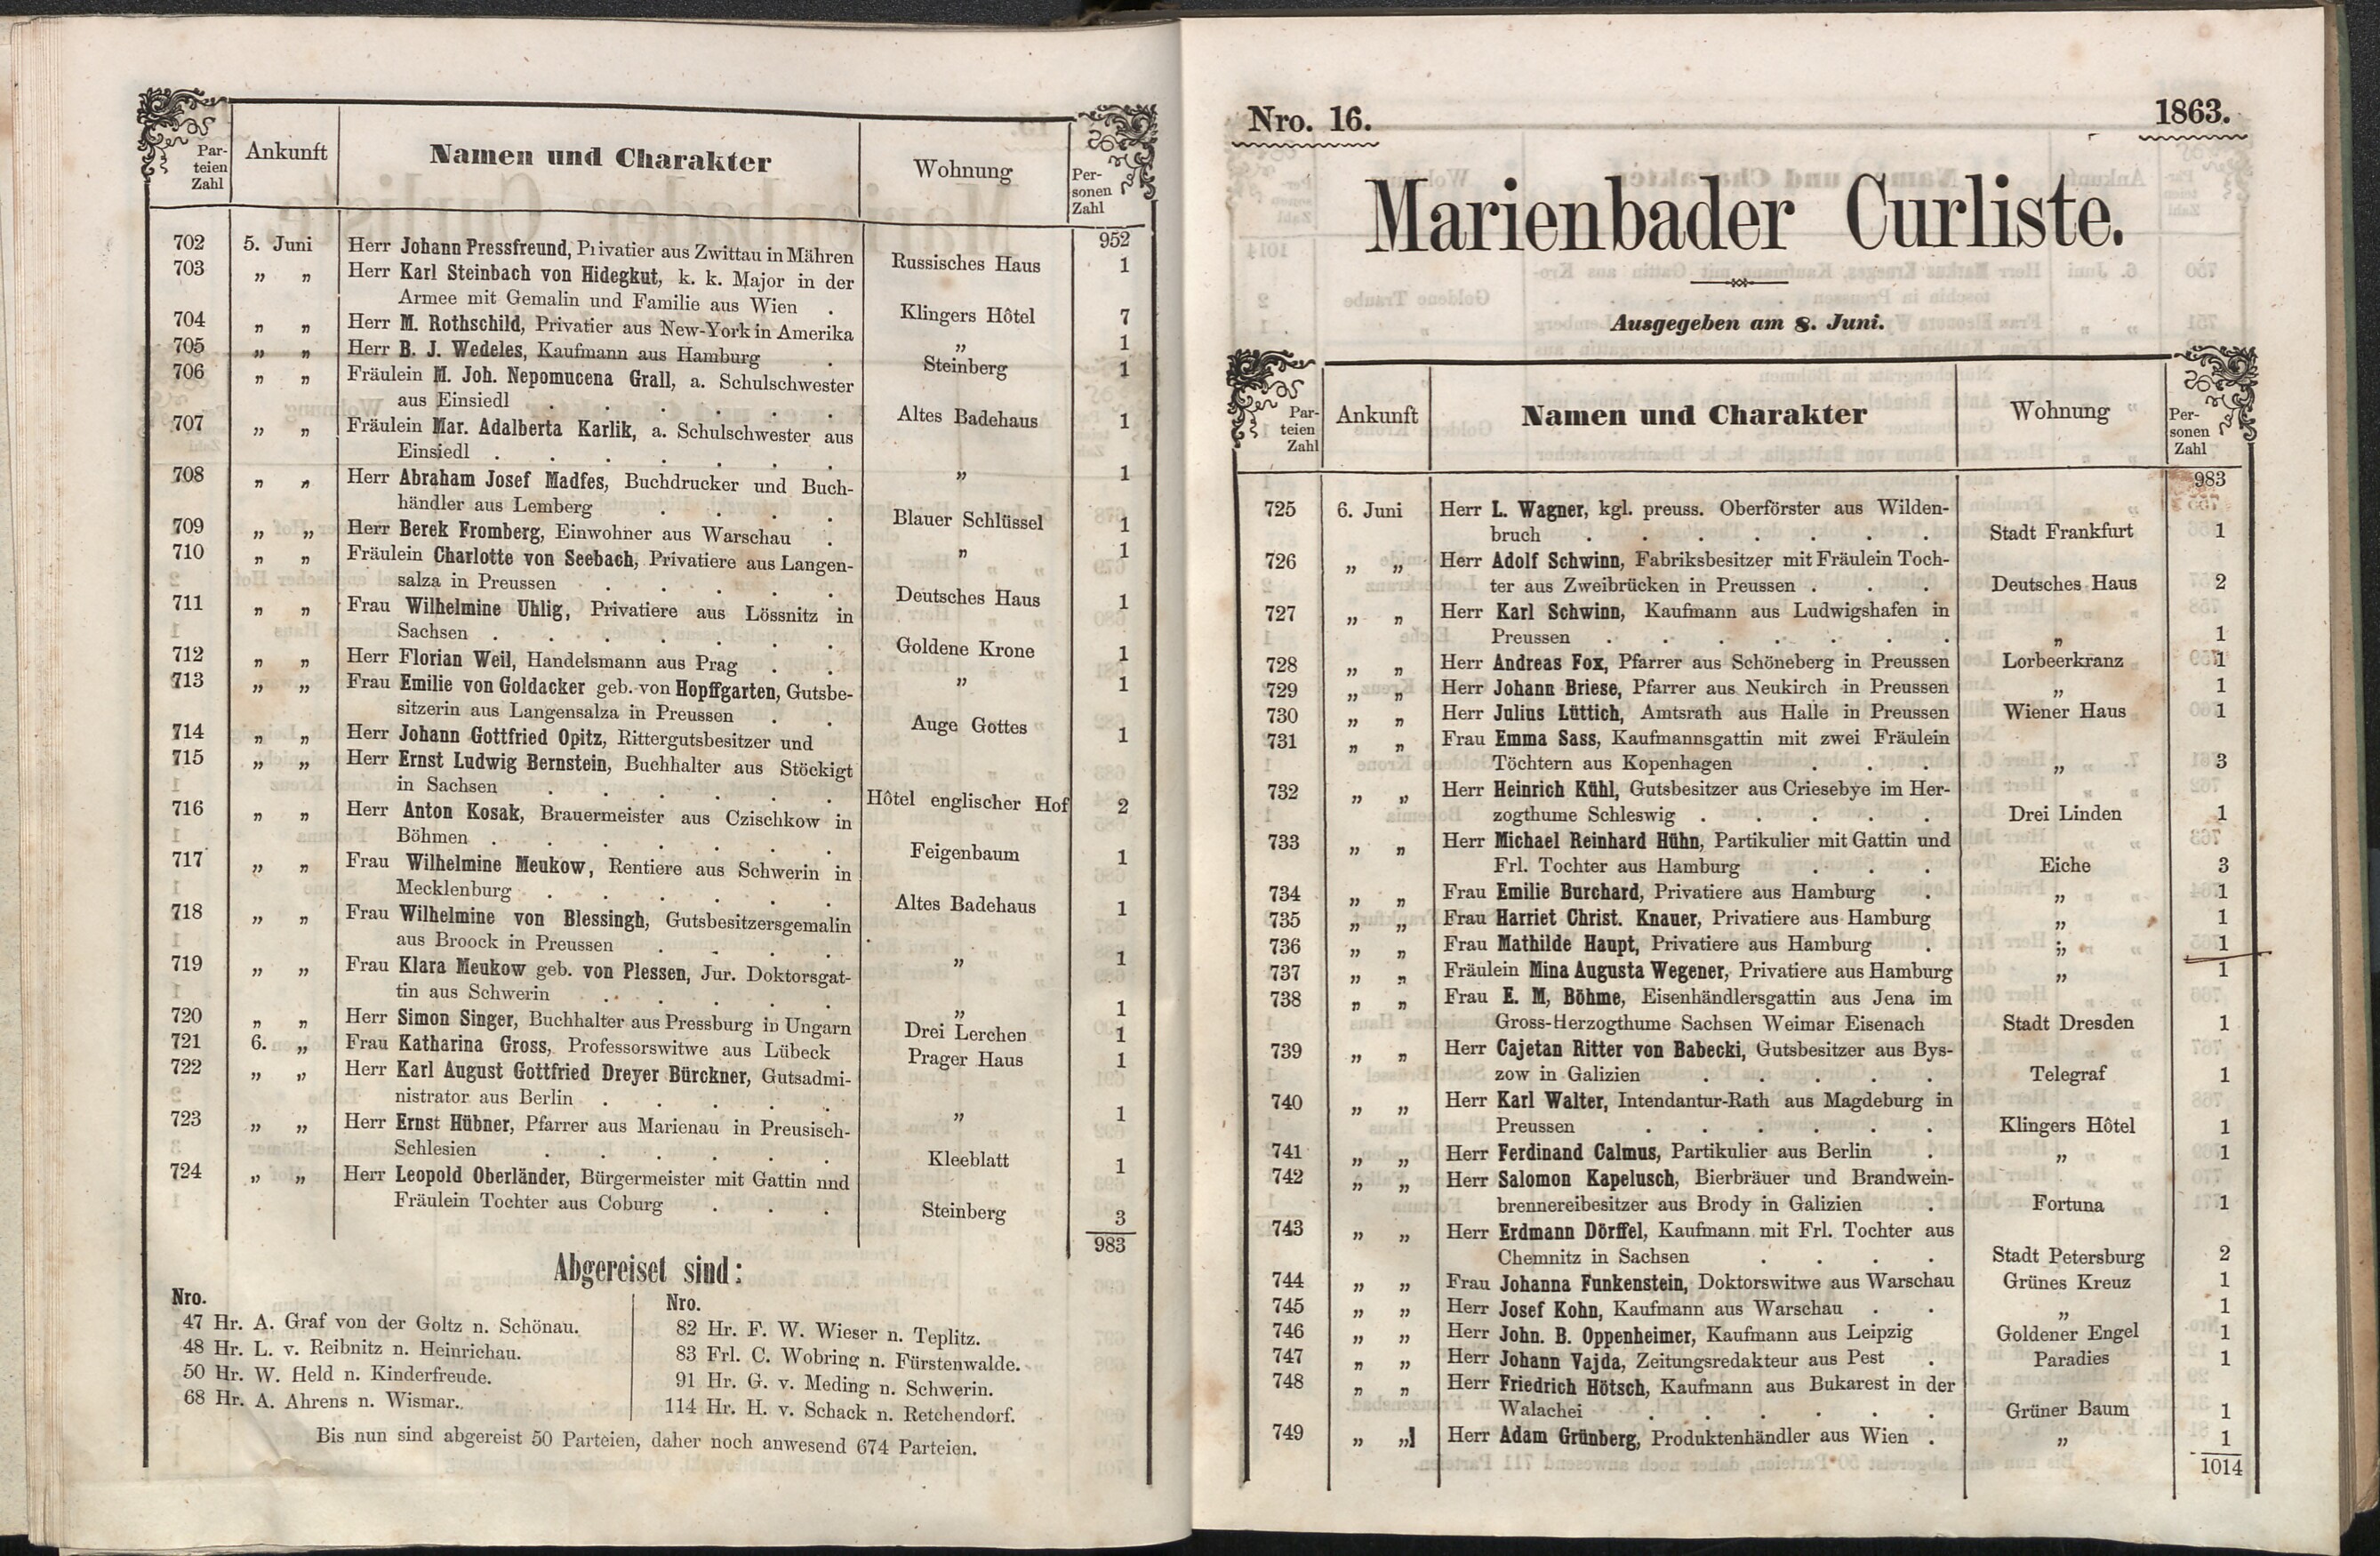 Par-
teien
Zahl
Ankunft
Namen und Charakter
Wohnung
Per-
sonen
Zahl
952
702 5. Juni Herr Johann Pressfreund, Privatier aus Zwittau in Mähren Russisches Haus 1
703 „ „ Herr Karl Steinbach von Hidegkut, k. k. Major in der
Armee mit Gemalin und Familie aus Wien . Klingers Hôtel 7
704 „ „ Herr M. Rothschild, Privatier aus New-York in Amerika „ 1
705 „ „ Herr B. J. Wedeles, Kaufmann aus Hamburg . Steinberg 1
706 „ „ Fräulein M. Joh. Nepomucena Grall, a. Schulschwester
aus Einsiedl . . . . . . Altes Badehaus 1
707 „ „ Fräulein Mar. Adalberta Karlik, a. Schulschwester aus
Einsiedl . . . . . . . „ 1
708 „ „ Herr Abraham Josef Madfes, Buchdrucker und Buch-
händler aus Lemberg . . . . Blauer Schlüssel 1
709 „ „ Herr Berek Fromberg, Einwohner aus Warschau . „ 1
710 „ „ Fräulein Charlotte von Seebach, Privatiere aus Langen-
salza in Preussen . . . . . Deutsches Haus 1
711 „ „ Frau Wilhelmine Uhlig, Privatiere aus Lössnitz in
Sachsen . . . . . . . Goldene Krone 1
712 „ „ Herr Florian Weil, Handelsmann aus Prag . . „ 1
713 „ „ Frau Emilie von Goldacker geb. von Hopffgarten, Gutsbe-
sitzerin aus Langensalza in Preussen . . Auge Gottes 1
714 „ „ Herr Johann Gottfried Opitz, Rittergutsbesitzer und
715 „ „ Herr Ernst Ludwig Bernstein, Buchhalter aus Stöckigt
in Sachsen . . . . . . Hôtel englischer Hof 2
716 „ „ Herr Anton Kosak, Brauermeister aus Czischkow in
Böhmen . . . . . . . Feigenbaum 1
717 „ „ Frau Wilhelmine Meukow, Rentiere aus Schwerin in
Mecklenburg . . . . . . Altes Badehaus 1
718 „ „ Frau Wilhelmine von Blessingh, Gutsbesitzersgemalin
aus Broock in Preussen . . . . „ 1
719 „ „ Frau Klara Meukow geb. von Plessen, Jur. Doktorsgat-
tin aus Schwerin . . . . . „ 1
720 „ „ Herr Simon Singer, Buchhalter aus Pressburg in Ungarn Drei Lerchen 1
721 6. „ Frau Katharina Gross, Professorswitwe aus Lübeck Prager Haus 1
722 „ „ Herr Karl August Gottfried Dreyer Bürckner, Gutsadmi-
nistrator aus Berlin . . . . . „ 1
723 „ „ Herr Ernst Hübner, Pfarrer aus Marienau in Preusisch-
Schlesien . . . . . . Kleeblatt 1
724 „ „ Herr Leopold Oberländer, Bürgermeister mit Gattin und
Fräulein Tochter aus Coburg . . . Steinberg 3
983
Abgereiset sind:
Nro.
47 Hr. A. Graf von der Goltz n. Schönau.
48 Hr. L. v. Reibnitz n. Heinrichau.
50 Hr. W. Held n. Kinderfreude.
68 Hr. A. Ahrens n. Wismar.
Nro.
82 Hr. F. W. Wieser n. Teplitz.
83 Frl. C. Wobring n. Fürstenwalde.
91 Hr. G. v. Meding n. Schwerin.
114 Hr. H. v. Schack n. Retchendorf.
Bis nun sind abgereist 50 Parteien, daher noch anwesend 674 Parteien.
Nro. 16. 1863.
Marienbader Curliste.
Ausgegeben am 8. Juni.
Par-
teien
Zahl
Ankunft
Namen und Charakter
Wohnung
Per-
sonen
Zahl
983
725 6. Juni Herr L. Wagner, kgl. preuss. Oberförster aus Wilden-
bruch . . . . . . . Stadt Frankfurt 1
726 „ „ Herr Adolf Schwinn, Fabriksbesitzer mit Fräulein Toch-
ter aus Zweibrücken in Preussen . . . Deutsches Haus 2
727 „ „ Herr Karl Schwinn, Kaufmann aus Ludwigshafen in
Preussen . . . . . . . „ 1
728 „ „ Herr Andreas Fox, Pfarrer aus Schöneberg in Preussen Lorbeerkranz 1
729 „ „ Herr Johann Briese, Pfarrer aus Neukirch in Preussen „ 1
730 „ „ Herr Julius Lüttich, Amtsrath aus Halle in Preussen Wiener Haus 1
731 „ „ Frau Emma Sass, Kaufmannsgattin mit zwei Fräulein
Töchtern aus Kopenhagen . . . „ 3
732 „ „ Herr Heinrich Kühl, Gutsbesitzer aus Criesebye im Her-
zogthume Schleswig . . . . . Drei Linden 1
733 „ „ Herr Michael Reinhard Hühn, Partikulier mit Gattin und
Frl. Tochter aus Hamburg . . . Eiche 3
734 „ „ Frau Emilie Burchard, Privatiere aus Hamburg . „ 1
735 „ „ Frau Harriet Christ. Knauer, Privatiere aus Hamburg „ 1
736 „ „ Frau Mathilde Haupt, Privatiere aus Hamburg . „ 1
737 „ „ Fräulein Mina Augusta Wegener, Privatiere aus Hamburg „ 1
738 „ „ Frau E. M, Böhme, Eisenhändlersgattin aus Jena im
Gross-Herzogthume Sachsen Weimar Eisenach Stadt Dresden 1
739 „ „ Herr Cajetan Ritter von Babecki, Gutsbesitzer aus Bys-
zow in Galizien . . . . . Telegraf 1
740 „ „ Herr Karl Walter, Intendantur-Rath aus Magdeburg in
Preussen . . . . . . Klingers Hôtel 1
741 „ „ Herr Ferdinand Calmus, Partikulier aus Berlin . „ 1
742 „ „ Herr Salomon Kapelusch, Bierbräuer und Brandwein-
brennereibesitzer aus Brody in Galizien . Fortuna 1
743 „ „ Herr Erdmann Dörffel, Kaufmann mit Frl. Tochter aus
Chemnitz in Sachsen . . . . Stadt Petersburg 2
744 „ „ Frau Johanna Funkenstein, Doktorswitwe aus Warschau Grünes Kreuz 1
745 „ „ Herr Josef Kohn, Kaufmann aus Warschau . . „ 1
746 „ „ Herr John. B. Oppenheimer, Kaufmann aus Leipzig Goldener Engel 1
747 „ „ Herr Johann Vajda, Zeitungsredakteur aus Pest . Paradies 1
748 „ „ Herr Friedrich Hötsch, Kaufmann aus Bukarest in der
Walachei . . . . . . Grüner Baum 1
749 „ „ Herr Adam Grünberg, Produktenhändler aus Wien . „ 1
1014